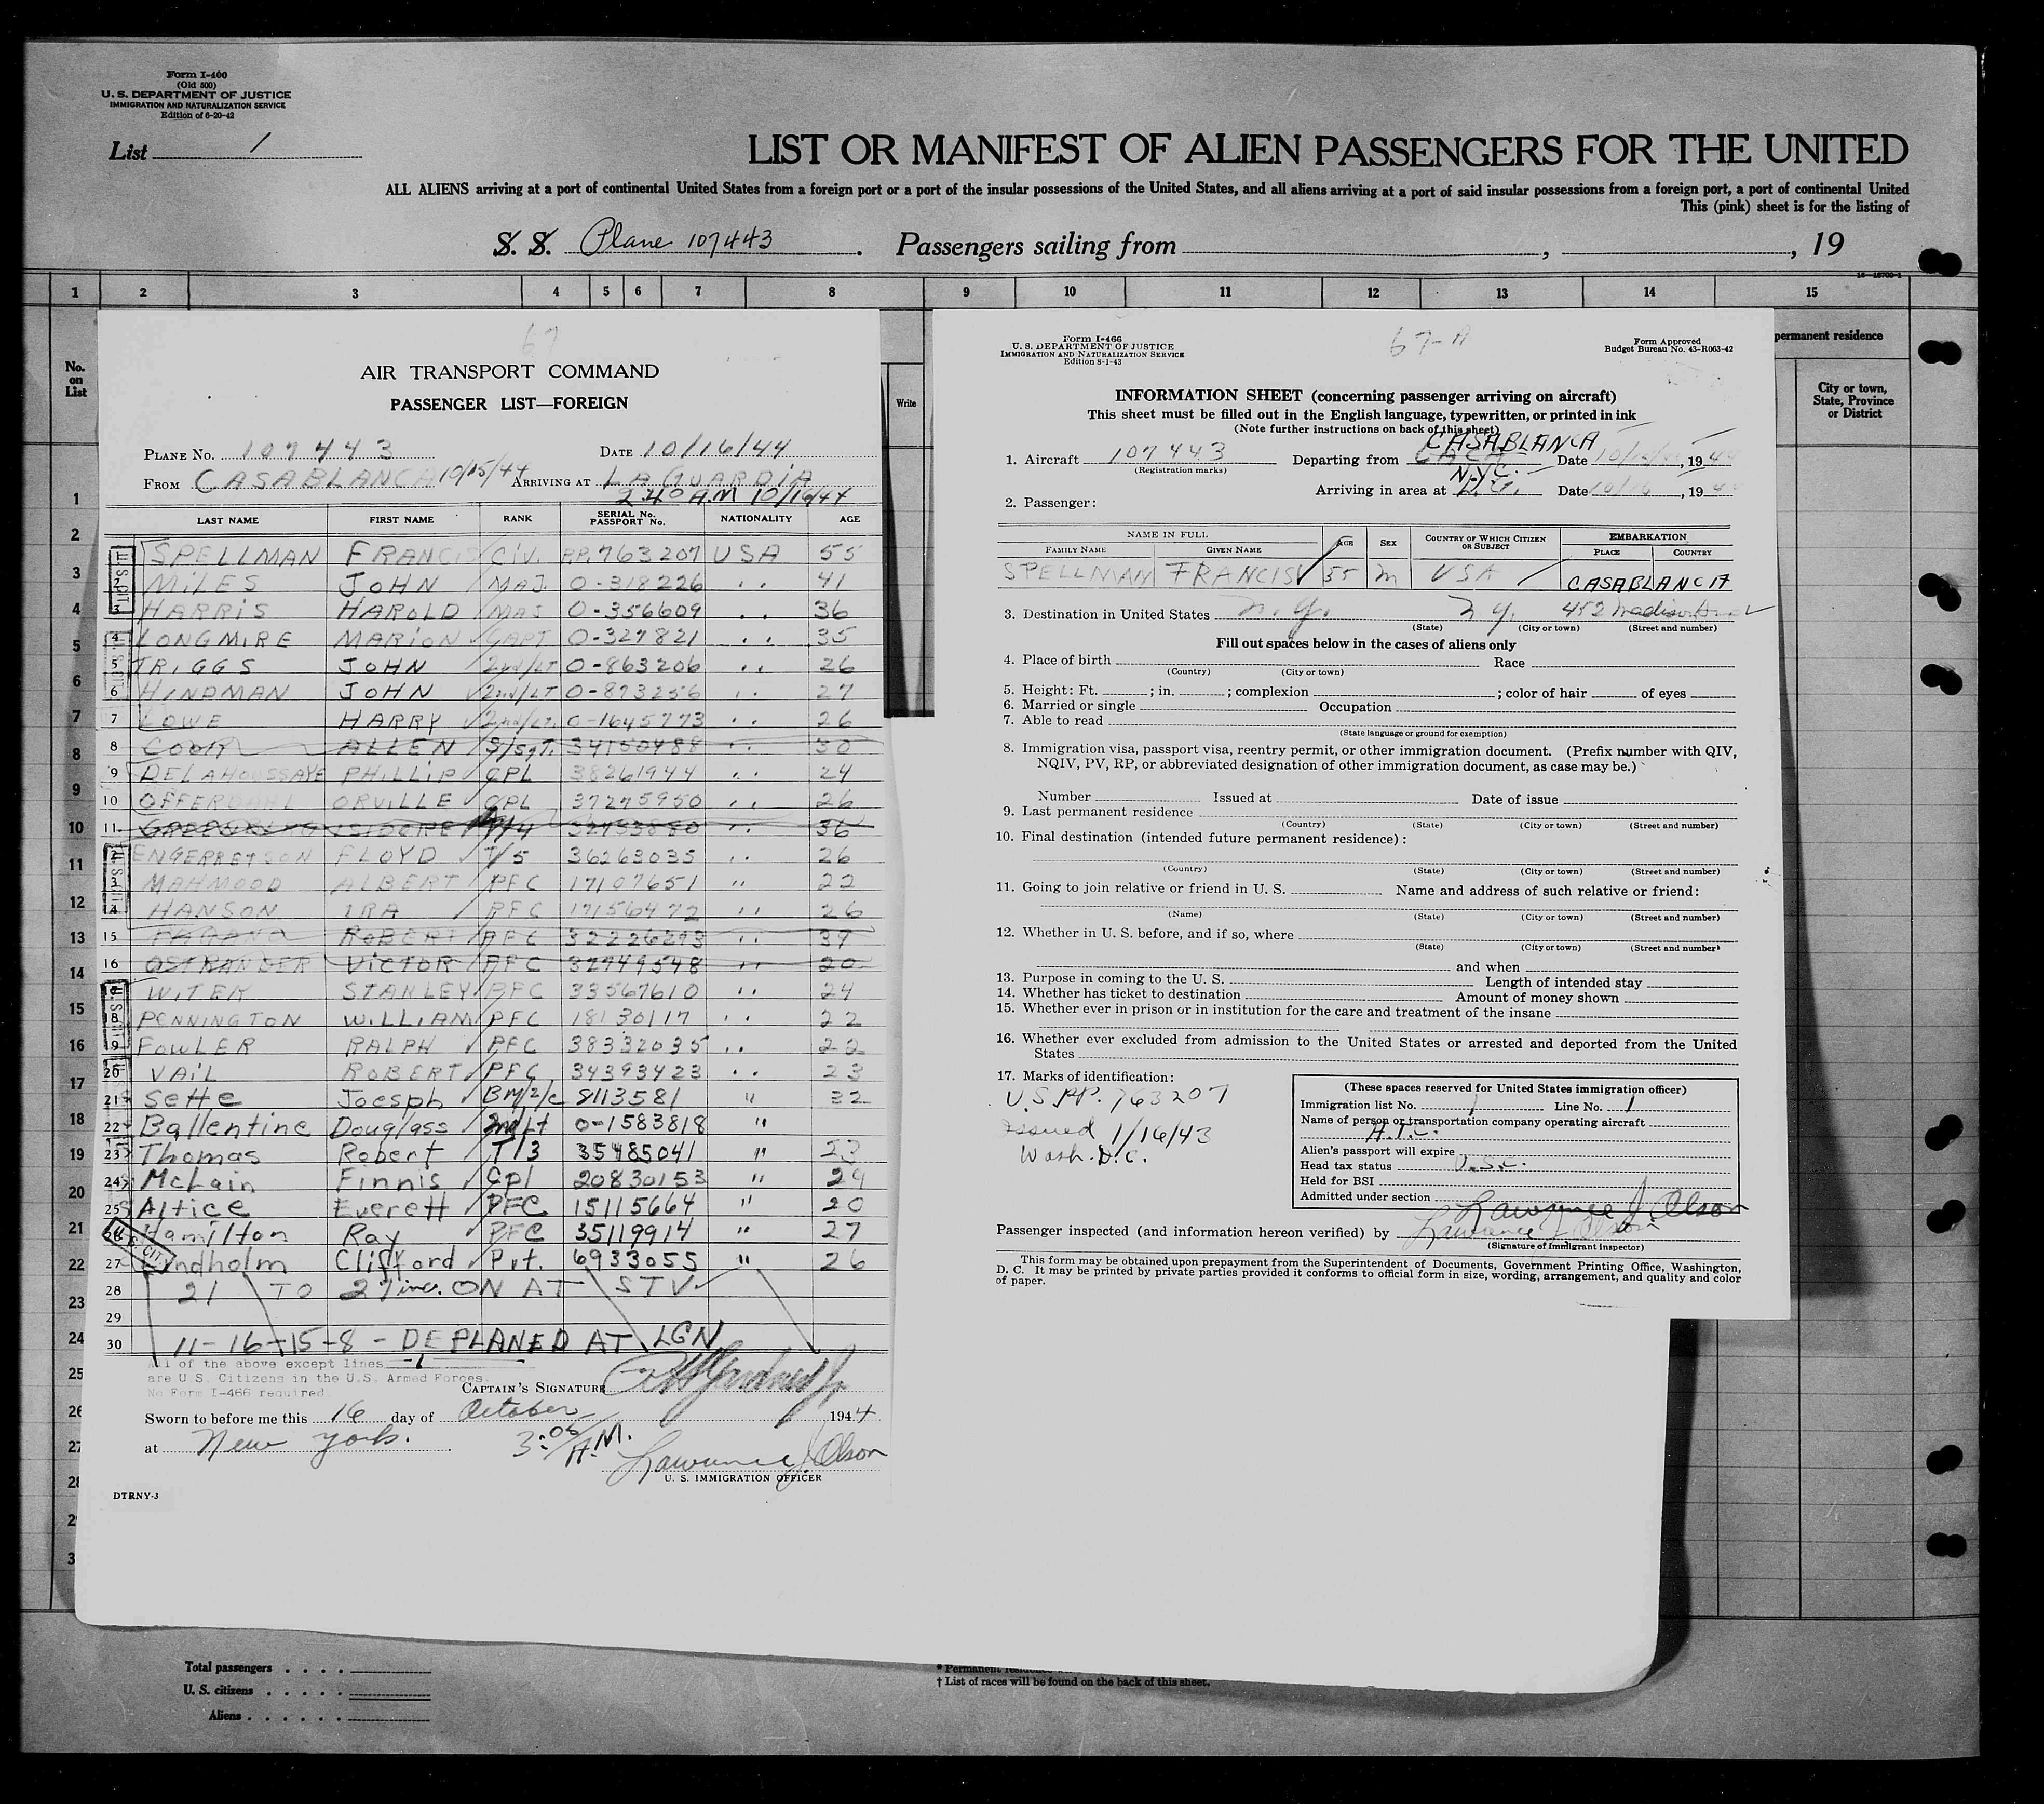 Form I-400
(Old 500)
U. S. DEPARTMENT OF JUSTICE
IMMIGRATION AND NATURALIZATION SERVICE
Edition of 6-20-42
List 1
LIST OR MANIFEST OF ALIEN PASSENGERS FOR THE UNITED
ALL ALIENS arriving at a port of continental United States from a foreign port or a port of the insular possessions of the United States, and all aliens arriving at a port of said insular possessions from a foreign port, a port of continental United
This (pink) sheet is for the listing of
S. S. Plane 107443. Passengers sailing from , , 19
1 2 3 4 5 6 7 8 9 10 11 12 13 14 15
No. on List
Write
permanent residence
City or town, State, Province or District
67
AIR TRANSPORT COMMAND
PASSENGER LIST—FOREIGN
PLANE NO. 107443 DATE 10/16/44
FROM CASABLANCA 10/15/44 ARRIVING AT LA GUARDIA
2 40 A.M 10/16/44
LAST NAME FIRST NAME RANK SERIAL No. PASSPORT No. NATIONALITY AGE
SPELLMAN FRANCIS CIV. P.P. 763207 USA 55
2 MILES JOHN MAJ. 0-318226 " 41
3 HARRIS HAROLD MAJ 0-356609 " 36
4 LONGMIRE MARION CAPT 0-327821 " 35
5 TRIGGS JOHN 2nd/LT 0-863206 " 26
6 HINDMAN JOHN 2nd/LT 0-873256 " 27
7 LOWE HARRY 2nd/LT. 0-1645773 " 26
8 COOK ALLEN S/SGT. 34150488 " 30
9 DELAHOUSSAYE PHILLIP CPL 38261944 " 24
10 OFFERDAHL ORVILLE CPL 37275950 " 26
11 ISIDORE T/4 32753880 " 36
12 ENGERBETSON FLOYD T/5 36263035 " 26
13 MAHMOOD ALBERT PFC 17107651 " 22
14 HANSON IRA PFC 17156472 " 26
15 ROBERT PFC 32226293 " 37
16 OSTRANDER VICTOR PFC 32749548 " 20
17 WITEK STANLEY PFC 33567610 " 24
18 PENNINGTON WILLIAM PFC 18130117 " 22
19 FOWLER RALPH PFC 38332035 " 22
20 VAIL ROBERT PFC 34393423 " 23
21 Sette Joesph BM/2/c 8113581 " 32
22 Ballentine Douglass 2nd Lt 0-1583818 "
23 Thomas Robert T/3 35485041 " 23
24 McLain Finnis Cpl 20830153 " 29
25 Altice Everett PFC 15115664 " 20
26 Hamilton Ray PFC 35119914 " 27
27 Lindholm Clifford Pvt. 6933055 " 26
28 21 TO 27 inc. ON AT STV
29
30 11-16-15-8 - DEPLANED AT LGN
All of the above except lines -1
are U.S. Citizens in the U.S. Armed Forces.
No Form I-466 required
CAPTAIN'S SIGNATURE
Sworn to before me this 16 day of October 1944
at New York. 3:06 A.M.
Lawrence J. Olson
U. S. IMMIGRATION OFFICER
DTRNY-3
67-A
Form I-466
U. S. DEPARTMENT OF JUSTICE
IMMIGRATION AND NATURALIZATION SERVICE
Edition 8-1-43
Form Approved
Budget Bureau No. 43-R063-42
INFORMATION SHEET (concerning passenger arriving on aircraft)
This sheet must be filled out in the English language, typewritten, or printed in ink
(Note further instructions on back of this sheet)
CASABLANCA
1. Aircraft 107443 Departing from CACA Date 10/15/44, 1944
(Registration marks)
N.Y.C.
Arriving in area at L.G. Date 10/16, 1944
2. Passenger:
NAME IN FULL AGE SEX COUNTRY OF WHICH CITIZEN OR SUBJECT EMBARKATION
FAMILY NAME GIVEN NAME PLACE COUNTRY
SPELLMAN FRANCIS 55 M USA CASABLANCA
3. Destination in United States N.Y. N.Y. 452 Madison
(State) (City or town) (Street and number)
Fill out spaces below in the cases of aliens only
4. Place of birth Race
(Country) (City or town)
5. Height: Ft. ; in. ; complexion ; color of hair of eyes
6. Married or single Occupation
7. Able to read
(State language or ground for exemption)
8. Immigration visa, passport visa, reentry permit, or other immigration document. (Prefix number with QIV,
NQIV, PV, RP, or abbreviated designation of other immigration document, as case may be.)
Number Issued at Date of issue
9. Last permanent residence
(Country) (State) (City or town) (Street and number)
10. Final destination (intended future permanent residence):
(Country) (State) (City or town) (Street and number)
11. Going to join relative or friend in U. S. Name and address of such relative or friend:
(Name) (State) (City or town) (Street and number)
12. Whether in U. S. before, and if so, where
(State) (City or town) (Street and number)
and when
13. Purpose in coming to the U. S. Length of intended stay
14. Whether has ticket to destination Amount of money shown
15. Whether ever in prison or in institution for the care and treatment of the insane
16. Whether ever excluded from admission to the United States or arrested and deported from the United
States
17. Marks of identification:
U.S.P.P. 763207
Issued 1/16/43
Wash. D.C.
(These spaces reserved for United States immigration officer)
Immigration list No. 1 Line No. 1
Name of person or transportation company operating aircraft
A.T.C.
Alien's passport will expire
Head tax status U.S.C.
Held for BSI
Admitted under section
Lawrence J. Olson
Passenger inspected (and information hereon verified) by Lawrence J. Olson
(Signature of immigrant inspector)
This form may be obtained upon prepayment from the Superintendent of Documents, Government Printing Office, Washington,
D. C. It may be printed by private parties provided it conforms to official form in size, wording, arrangement, and quality and color
of paper.
Total passengers
U. S. citizens
Aliens
* Permanent
† List of races will be found on the back of this sheet.